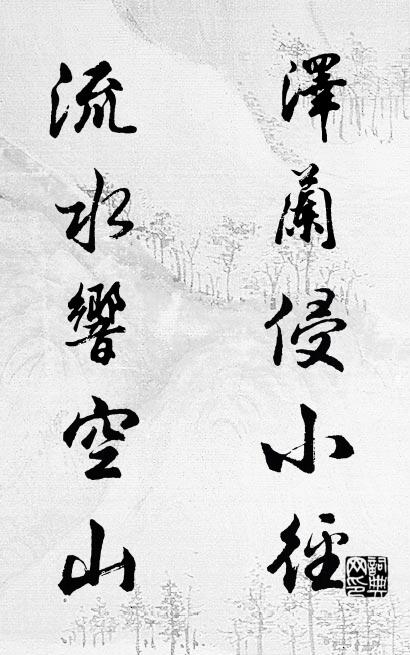 澤蘭侵小徑
流水響空山
詞典网印